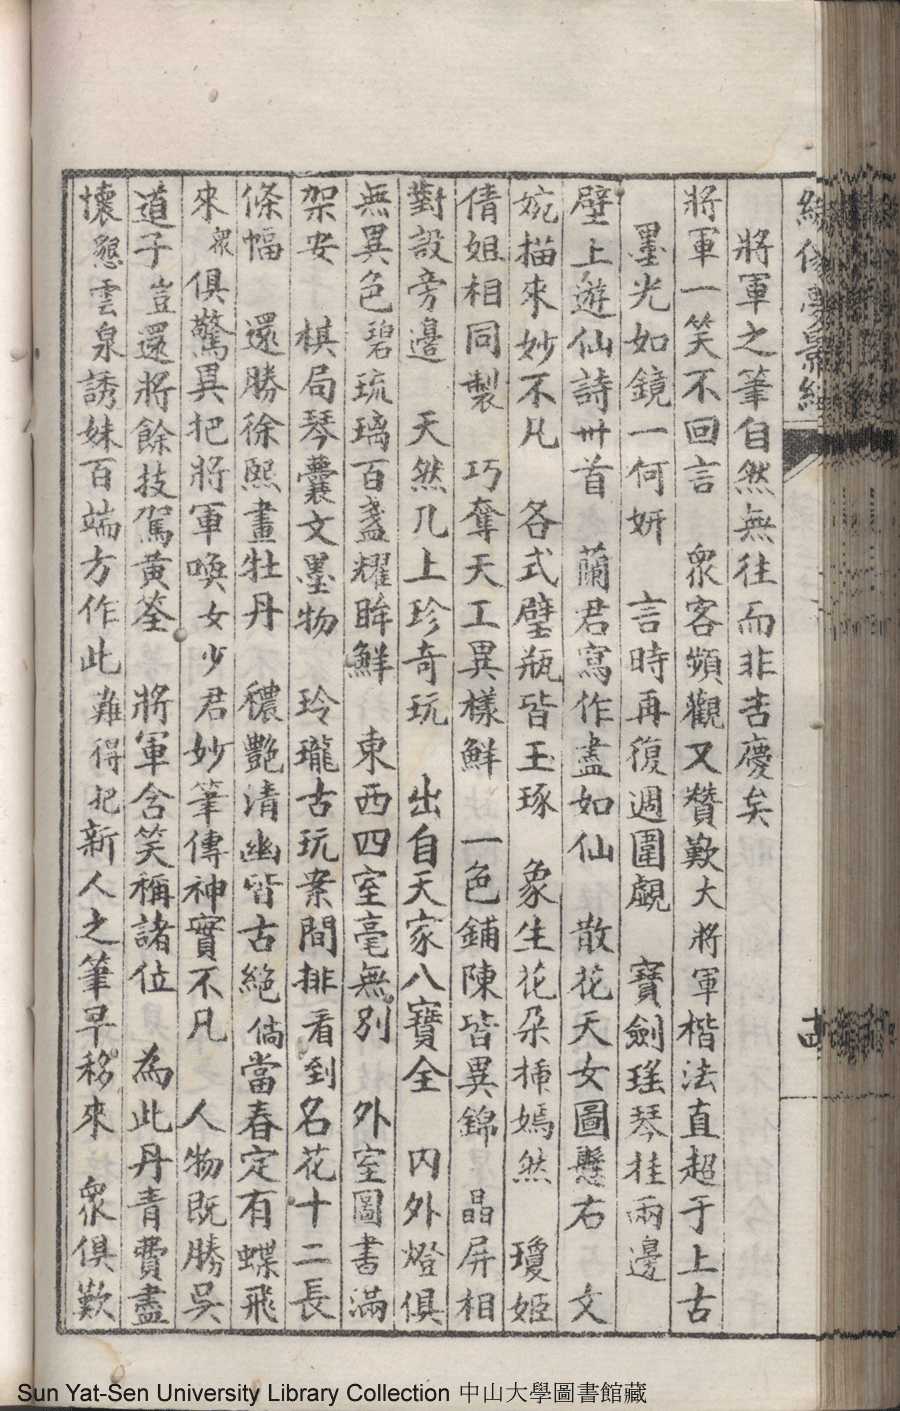 繡像夢影緣
將軍之筆自然無往而非吉慶矣
將軍一笑不回言　衆客頻觀又贊歎大將軍楷法直超于上古
墨光如鏡一何妍　言時再復週圍覷　寶劍瑤琴挂兩邊
壁上遊仙詩卅首　蘭君寫作盡如仙　散花天女圖懸右　文
婉描來妙不凡　各式壁瓶皆玉琢　象生花朶揷嫣然　瓊姬
倩姐相同製　巧奪天工異樣鮮　一色鋪陳皆異錦　晶屏相
對設旁邊　天然几上珍奇玩　出自天家八寶全　内外燈俱
無異色碧琉璃百盞耀眸鮮　東西四室毫無別　外室圖書滿
架安　棋局琴囊文墨物　玲瓏古玩案間排看到名花十二長
條幅　還勝徐熙畫牡丹　穠艷清幽皆古絕倘當春定有蝶飛
來衆俱驚異把將軍喚女少君妙筆傳神實不凡　人物既勝吳
道子豈還將餘技駕黃筌　將軍含笑稱諸位　為此丹青費盡
懷懇雲泉誘妹百端方作此難得把新人之筆早移來　衆俱歎
Sun Yat-Sen University Library Collection 中山大學圖書館藏